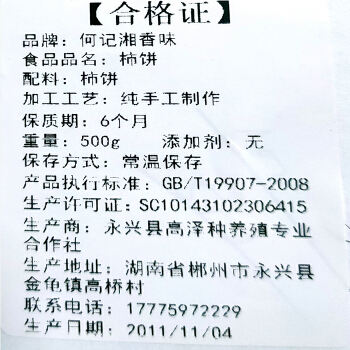 【合格证】
品牌：何记湘香味
食品品名：柿饼
配料：柿饼
加工工艺：纯手工制作
保质期：6个月
重量：500g 添加剂：无
保存方式：常温保存
产品执行标准：GB/T19907-2008
生产许可证：SC10143102306415
生产商：永兴县高泽种养殖专业
合作社
生产地址：湖南省郴州市永兴县
金龟镇高桥村
联系电话：17775972229
生产日期：2011/11/04